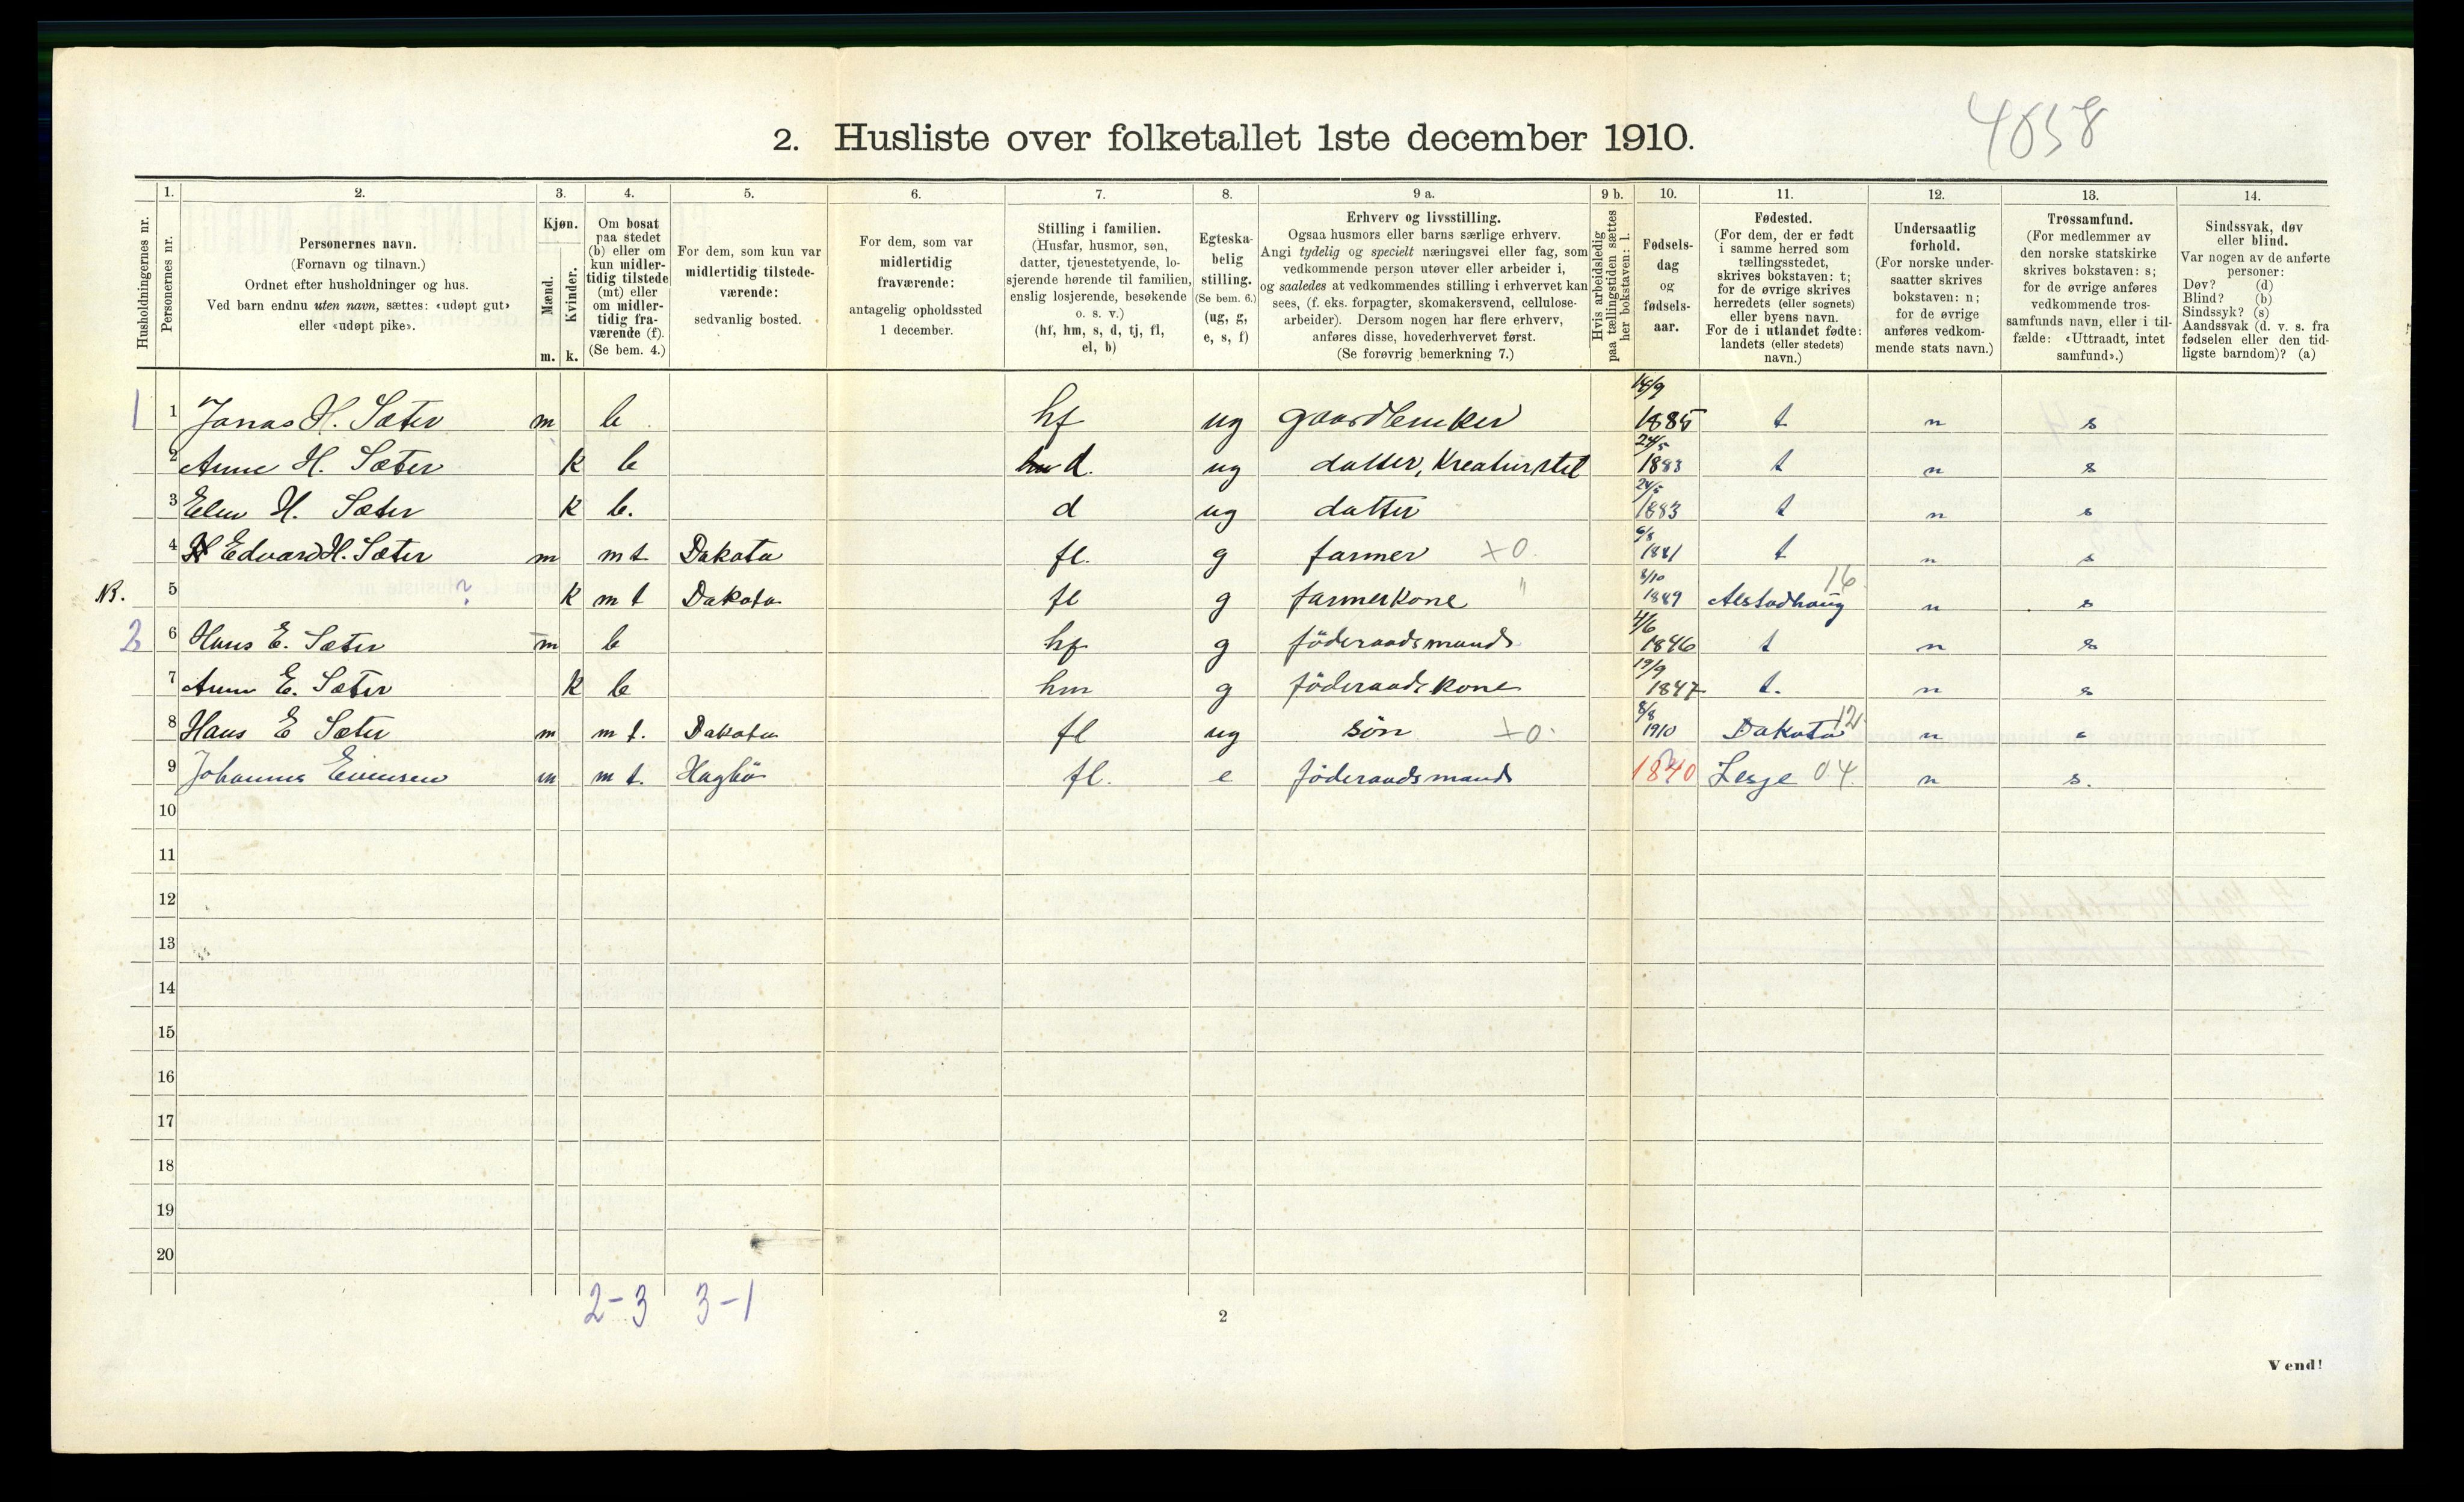 4058
2. Husliste over folketallet 1ste december 1910.
Husholdningernes nr.
1.
Personernes nr.
2.
Personernes navn.
(Fornavn og tilnavn.)
Ordnet efter husholdninger og hus.
Ved barn endnu uten navn, sættes: «udøpt gut»
eller «udøpt pike».
3.
Kjøn.
Mænd.
Kvinder.
m. k.
4.
Om bosat
paa stedet
(b) eller om
kun midler-
tidig tilstede
(mt) eller
om midler-
tidig fra-
værende (f).
(Se bem. 4.)
5.
For dem, som kun var
midlertidig tilstede-
værende:
sedvanlig bosted.
6.
For dem, som var
midlertidig
fraværende:
antagelig opholdssted
1 december.
7.
Stilling i familien.
(Husfar, husmor, søn,
datter, tjenestetyende, lo-
sjerende hørende til familien,
enslig losjerende, besøkende
o. s. v.)
(hf, hm, s, d, tj, fl,
el, b)
8.
Egteska-
belig
stilling.
(Se bem. 6.)
(ug, g,
e, s, f)
9 a.
Erhverv og livsstilling.
Ogsaa husmors eller barns særlige erhverv.
Angi tydelig og specielt næringsvei eller fag, som
vedkommende person utøver eller arbeider i,
og saaledes at vedkommendes stilling i erhvervet kan
sees, (f. eks. forpagter, skomakersvend, cellulose-
arbeider). Dersom nogen har flere erhverv,
anføres disse, hovederhvervet først.
(Se forøvrig bemerkning 7.)
9 b.
Hvis arbeidsledig
paa tællingstiden sættes
her bokstaven: l.
10.
Fødsels-
dag
og
fødsels-
aar.
11.
Fødested.
(For dem, der er født
i samme herred som
tællingsstedet,
skrives bokstaven: t;
for de øvrige skrives
herredets (eller sognets)
eller byens navn.
For de i utlandet fødte:
landets (eller stedets)
navn.)
12.
Undersaatlig
forhold.
(For norske under-
saatter skrives
bokstaven: n;
for de øvrige
anføres vedkom-
mende stats navn.)
13.
Trossamfund.
(For medlemmer av
den norske statskirke
skrives bokstaven: s;
for de øvrige anføres
vedkommende tros-
samfunds navn, eller i til-
fælde: «Uttraadt, intet
samfund».)
14.
Sindssvak, døv
eller blind.
Var nogen av de anførte
personer:
Døv? (d)
Blind? (b)
Sindssyk? (s)
Aandssvak (d. v. s. fra
fødselen eller den tid-
ligste barndom)? (a)
1 1 Jonas H. Sæter m b hf ug gaardbruker 1885 t n s
2 Anne H. Sæter k b d. ug datter, Kreaturstel 24/5 1883 t n s
3 Elen H. Sæter k b. d ug datter 24/5 1883 t n s
4 Edvard H. Sæter m mt Dakota fl. g farmer +0. 6/8 1881 t n s
NB. 5 ? k mt Dakota fl g farmerkone " 3/10 1889 Alstadhaug 16 n s
2 6 Hans E. Sæter m b hf g föderaadsmand 4/6 1846 t n s
7 Anne E. Sæter k b hm g föderaadskone 19/9 1847 t. n s
8 Hans E Sæter m mt. Dakota fl ug søn +0. 8/8 1910 Dakota 12 n s
9 Johannes m mt. Hagbö fl. e föderaadsmand 1840 Lesje 04 n s.
10
11
12
13
14
15
16
17
18
19
20
2-3 3-1
2
Vend!